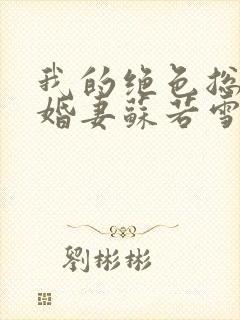 我的绝色总
婚妻苏若雪
劉彬彬